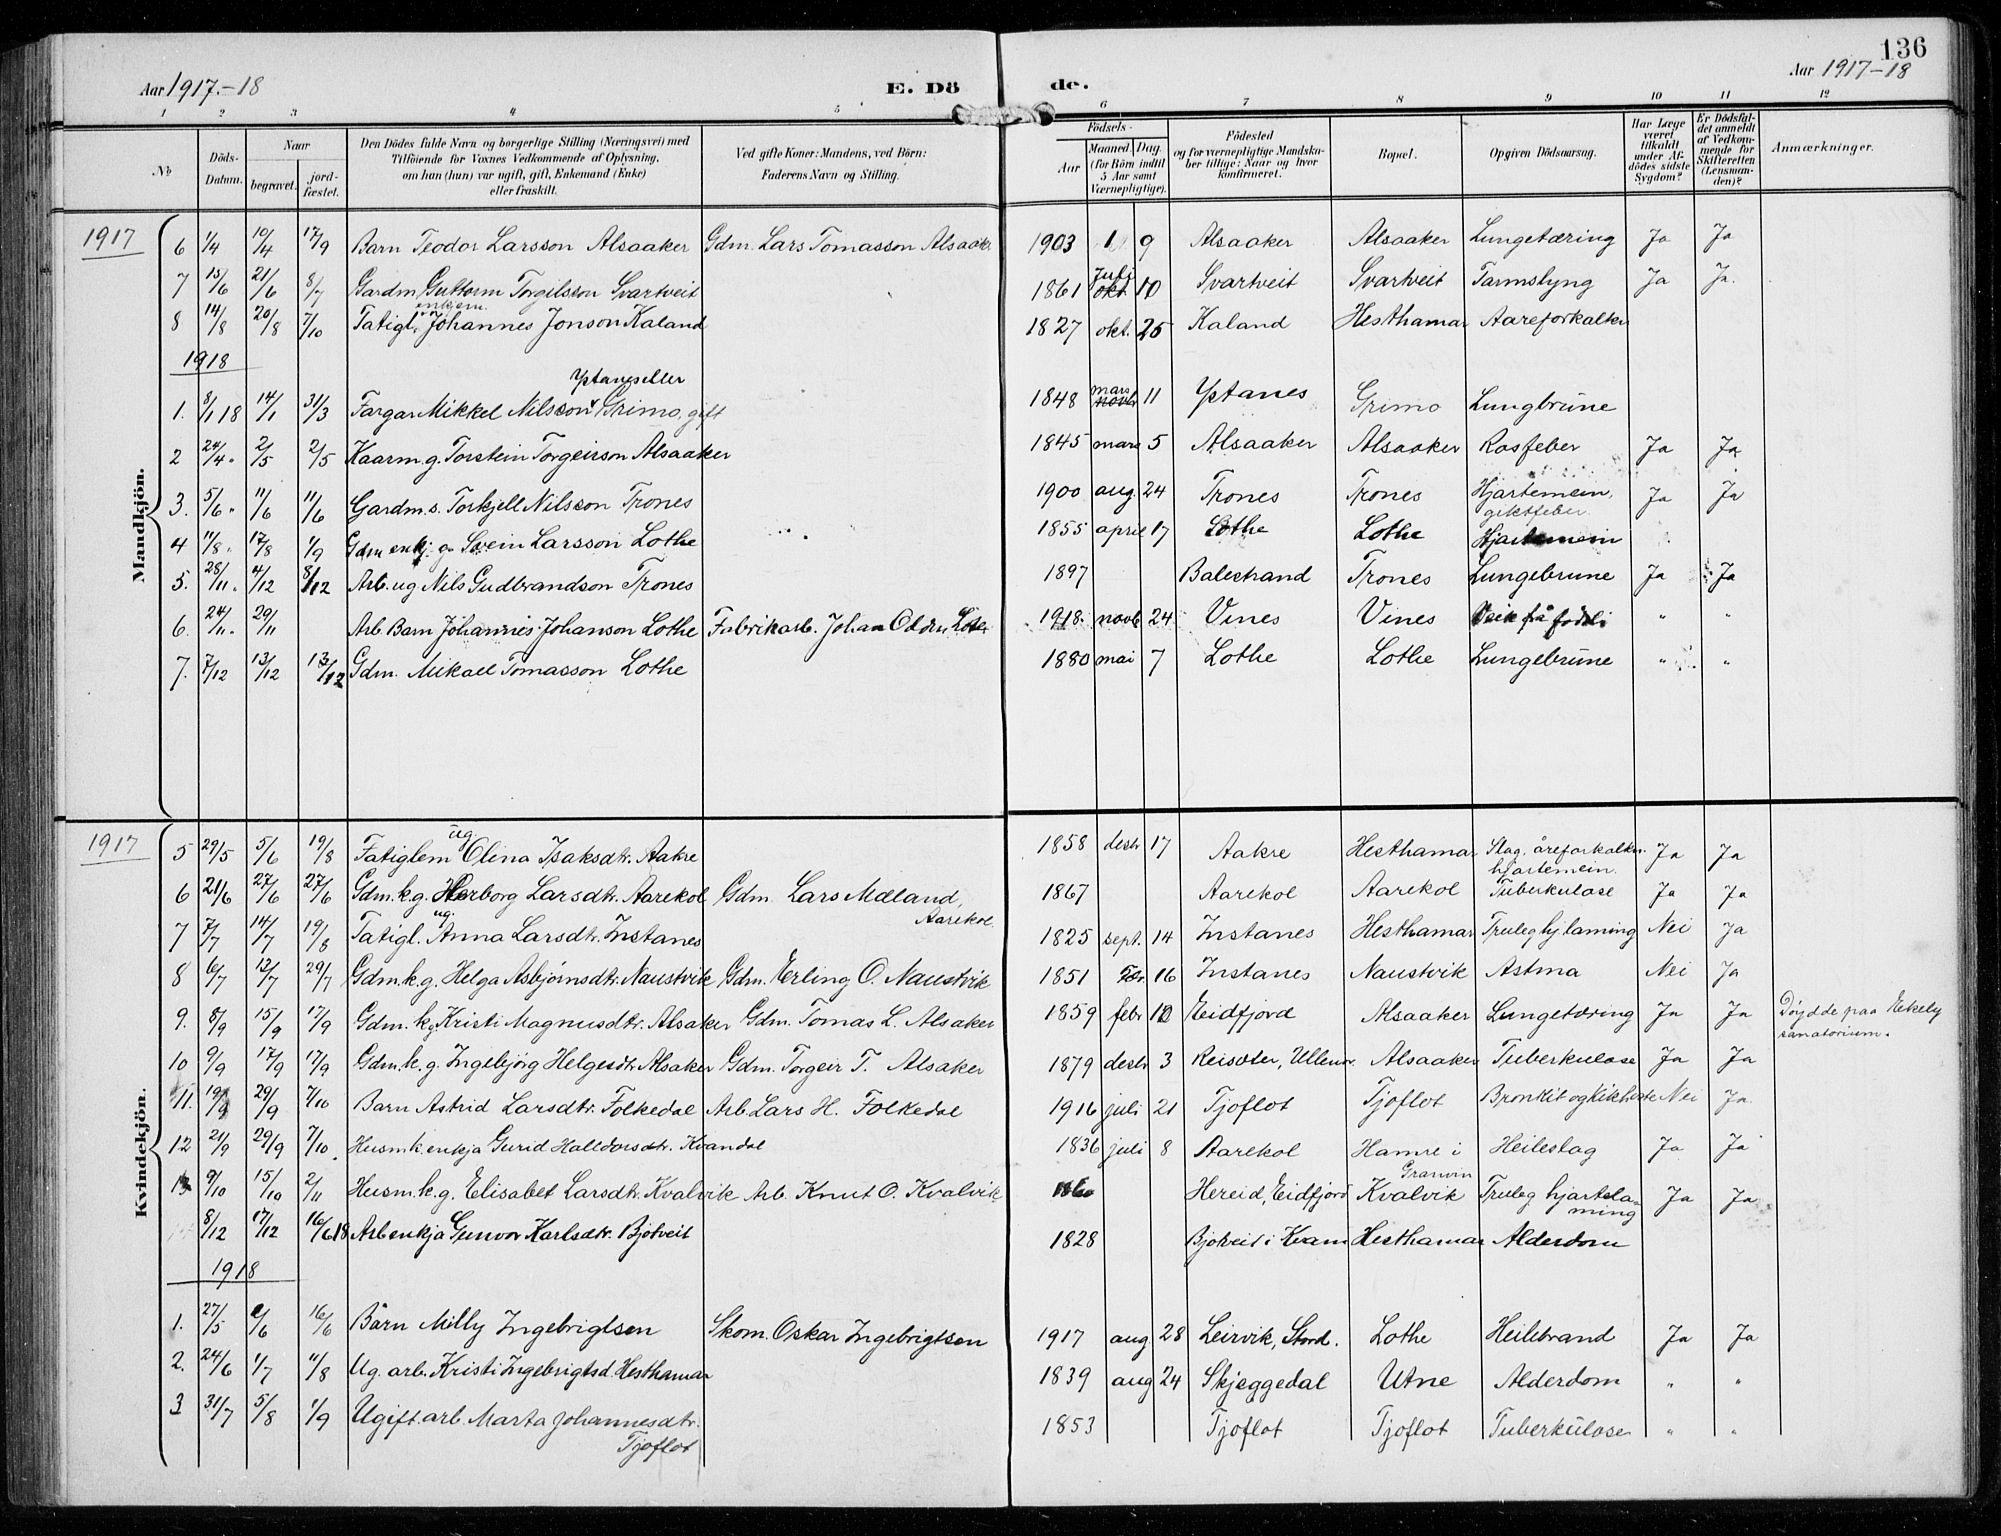 136
Aar 1917.-18
E. Dö
de.
Aar 1917-18
1 2 3 4 5 6 7 8 9 10 11 12
No
Döds-Datum.
Naar
begravet.
jord-fæstet.
Den Dödes fulde Navn og borgerlige Stilling (Næringsvei) med
Tilföiende for Voxnes Vedkommende af Oplysning,
om han (hun) var ugift, gift, Enkemand (Enke)
eller fraskilt.
Ved gifte Koner: Mandens, ved Börn:
Faderens Navn og Stilling.
Födsels-
Aar
Maaned. Dag.
(for Börn indtil
5 Aar samt
Værnepligtige).
Födested
og for værnepligtige Mandska-
ber tillige: Naar og hvor
konfirmeret.
Bopæl.
Opgiven Dödsaarsag.
Har Læge
været
tilkaldt
under Af-
dödes sidste
Sygdom?
Er Dödsfal-
det anmeldt
af Vedkom-
mende for
Skifteretten
(Lensman-
den)?
Anmærkninger.
Mandkjön.
1917
6 1/4 10/4 17/9 Barn Teodor Larsson Alsaaker Gdm. Lars Tomasson Alsaak 1903 1 9 Alsaaker Alsaaker Lungetæring Ja Ja
7 15/6 21/6 8/7 Gardm. Guttorm Torgilsson Svartveit 1861 juli okt. 10 Svartveit Svartveit Tarmslyng Ja Ja.
8 14/8 20/8 7/10 Fatigl. enkem. Johannes Jonson Kaland 1827 okt. 25 Kaland Hesthamar Aareforkalkn
1918
1. 8/1 18 14/1 31/3 Fargar Mikkel Nilsson Ystanes eller Grimo, gift 1848 mars novbr 11 Ystanes Grimo Lungbrune
2 24/4 " 2/5 2/5 Kaarm. g. Torstein Torgeirson Alsaaker 1845 mars 5 Alsaaker Alsaaker Rosfeber Ja Ja
3. 5/6 " 11/6 11/6 Gardm. s. Torkjell Nilsson Trones 1900 aug. 24 Trones Trones Hjartemein, giktfeber Ja Ja
4 11/8. 17/8 1/9 Gdm enkj. g. Svein Larsson Lothe 1855 april 17 Lothe Lothe Hjartemein
5. 28/11. 4/12 8/12 Arb. ug Nils Gudbrandson Trones 1897 Balestrand Trones Lungebrune Ja Ja
6. 24/11. 29/11 Arb. Barn Johannes Johanson Lothe Fabrikarb. Johan Lothe 1918. novb. 24 Vines Vines Veik frå " "
7. 7/12 13/12 13/12 Gdm. Mikael Tomasson Lothe 1880 mai 7 Lothe Lothe Lungebrune " "
Kvindekjön.
1917
5 29/5 5/6 19/8 Fatiglem ug Olina Isaksdtr. Aakre 1858 desbr 17 Aakre Hesthamar Slag, åreforkalkn. hjartemein. Ja Ja
6 21/6 27/6 27/6 Gdm. k. g. Herborg Larsdtr. Aarekol Gdm. Lars Mæland, Aarekol 1867 Aarekol Aarekol Tuberkulose Ja Ja
7 7/7 14/7 19/8 Fatigl. ug. Anna Larsdtr. Instanes 1825 sept. 14 Instanes Hesthamar Truleg hj.laming Nei Ja
8 6/7 13/7 29/7 Gdm. k. g. Helga Asbjørnsdtr. Naustvik Gdm. Erling O. Naustvik 1851 16 Instanes Naustvik Astma Nei Ja
9. 8/9 15/9 17/9 Gdm. k. g. Kristi Magnusdtr. Alsaker Gdm. Tomas L. Alsaker 1859 febr 10 Eidfjord Alsaaker Lungetæring Ja Ja Døydde paa Eekely sanatorium.
10 9/9 17/9 17/9 Gdm. k. g. Ingebjörg Helgesdtr. Alsaker Gdm. Torgeir T. Alsaker 1879 desbr 3 Reisæter, Ullensv. Alsaaker Tuberkulose Ja Ja
11. 19/9 29/9 7/10 Barn Astrid Larsdtr. Folkedal Arb. Lars H. Folkedal 1916 juli 21 Tjoflot Tjoflot Bronkit og kikhoste Nei Ja.
12 21/9 29/9 7/10. Husm. k. enkja Gurid Halldorsdtr. Kvandal 1836 juli 8 Aarekol Hamre i Granvin Heileslag Ja Ja
13 9/10 15/10 2/11 Husm. k. g. Elisabet Larsdtr. Kvalvik Arb. Knut O. Kvalvik Hereid, Eidfjord Kvalvik Truleg hjartela-ming Ja Ja
8/12 17/12 16/6 18 Arb enkja Gunvor Karlsdtr. Bjotveit 1828 Bjotveit i Kvam Hesthamar Alderdom
1918
1. 27/5 /6 16/6 Barn Milly Ingebrigtsen Skom. Oskar Ingebrigtsen 1917 aug. 28 Leirvik, Stord. Lothe Heilebrand Ja Ja
2. 24/6 1/7 11/8 Ug. arb. Kristi Ingebrigtsd. Hesthamar 1839 aug 24 Skjeggedal Utne Alderdom " "
3 31/7 5/8 1/9 Ugift. arb. Marta Johannesdtr. Tjoflot 1853 Tjoflot Tjoflot Tuberkulose " "